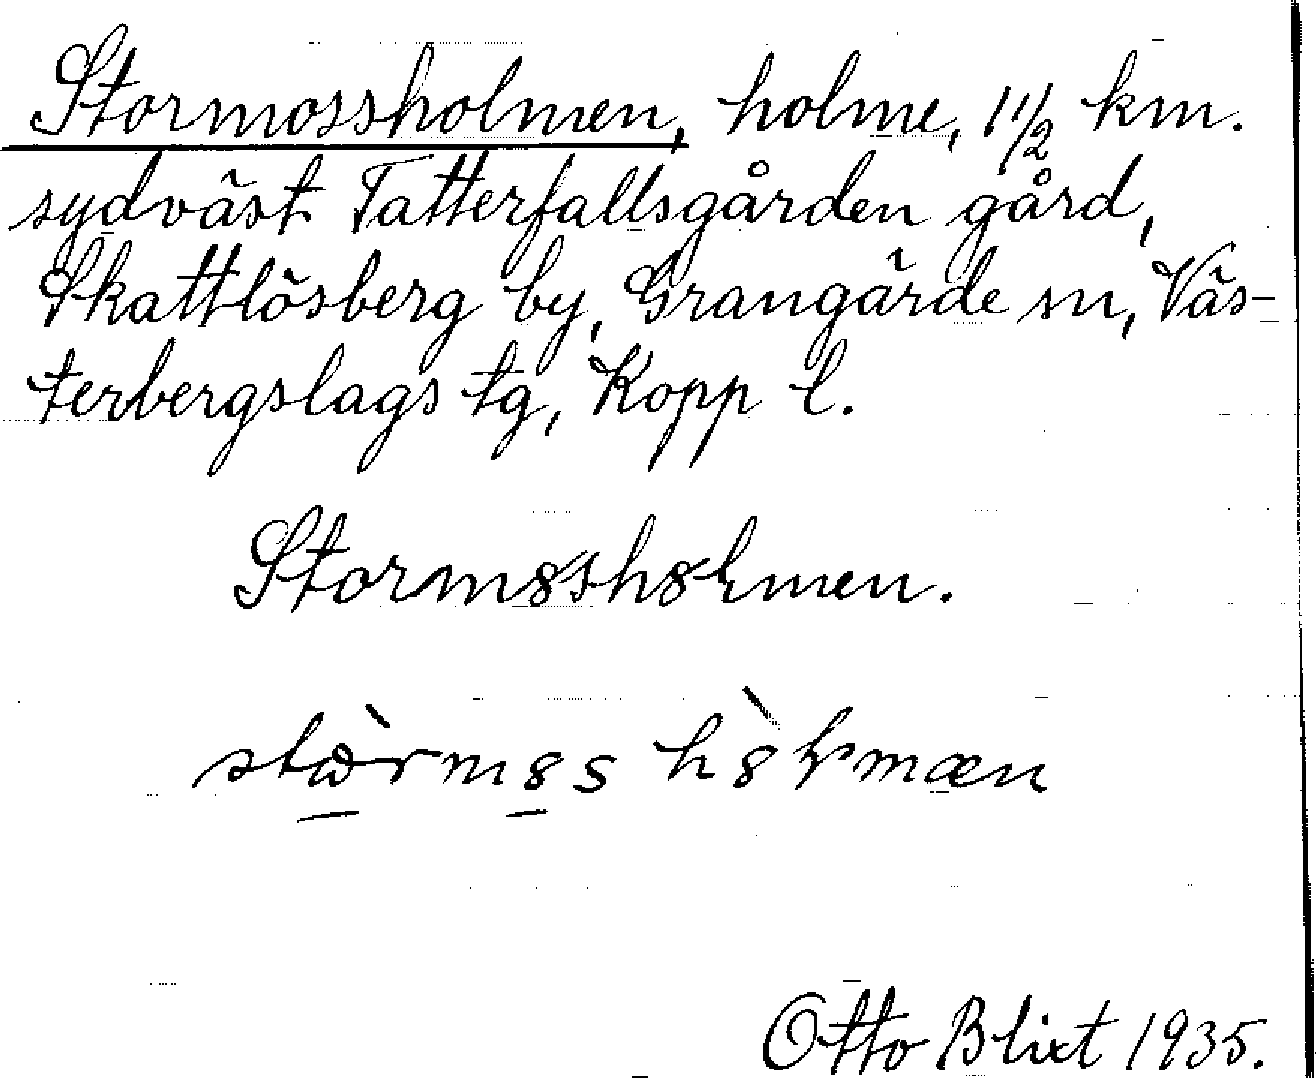 Stormossholmen, holme, 1 1/2 km.
sydväst Tatterfallsgården gård,
Skattlösberg by, Grangärde sn, Väs-
terbergslags tg, Kopp l.
Stormssholmen.
Otto Blixt 1935.